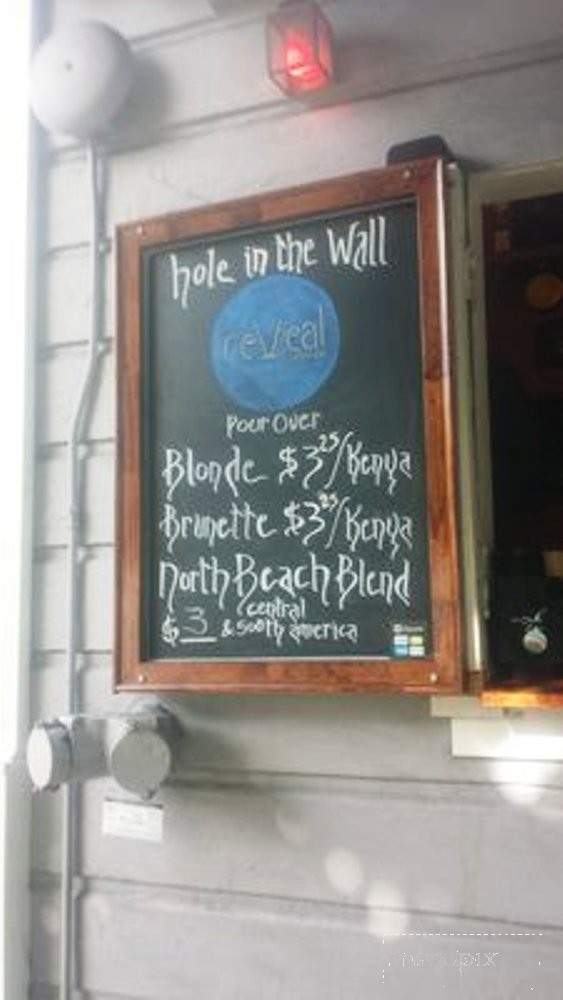 hole in the Wall
reveal
Pour Over
Blonde $3²⁵/Kenya
Brunette $3²⁵/Kenya
North Beach Blend
$3 central
& south america